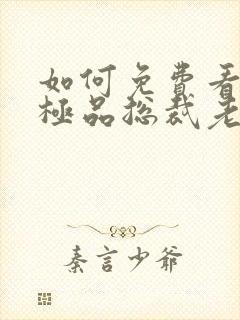 如何免費看
極品總裁老
秦言少爺